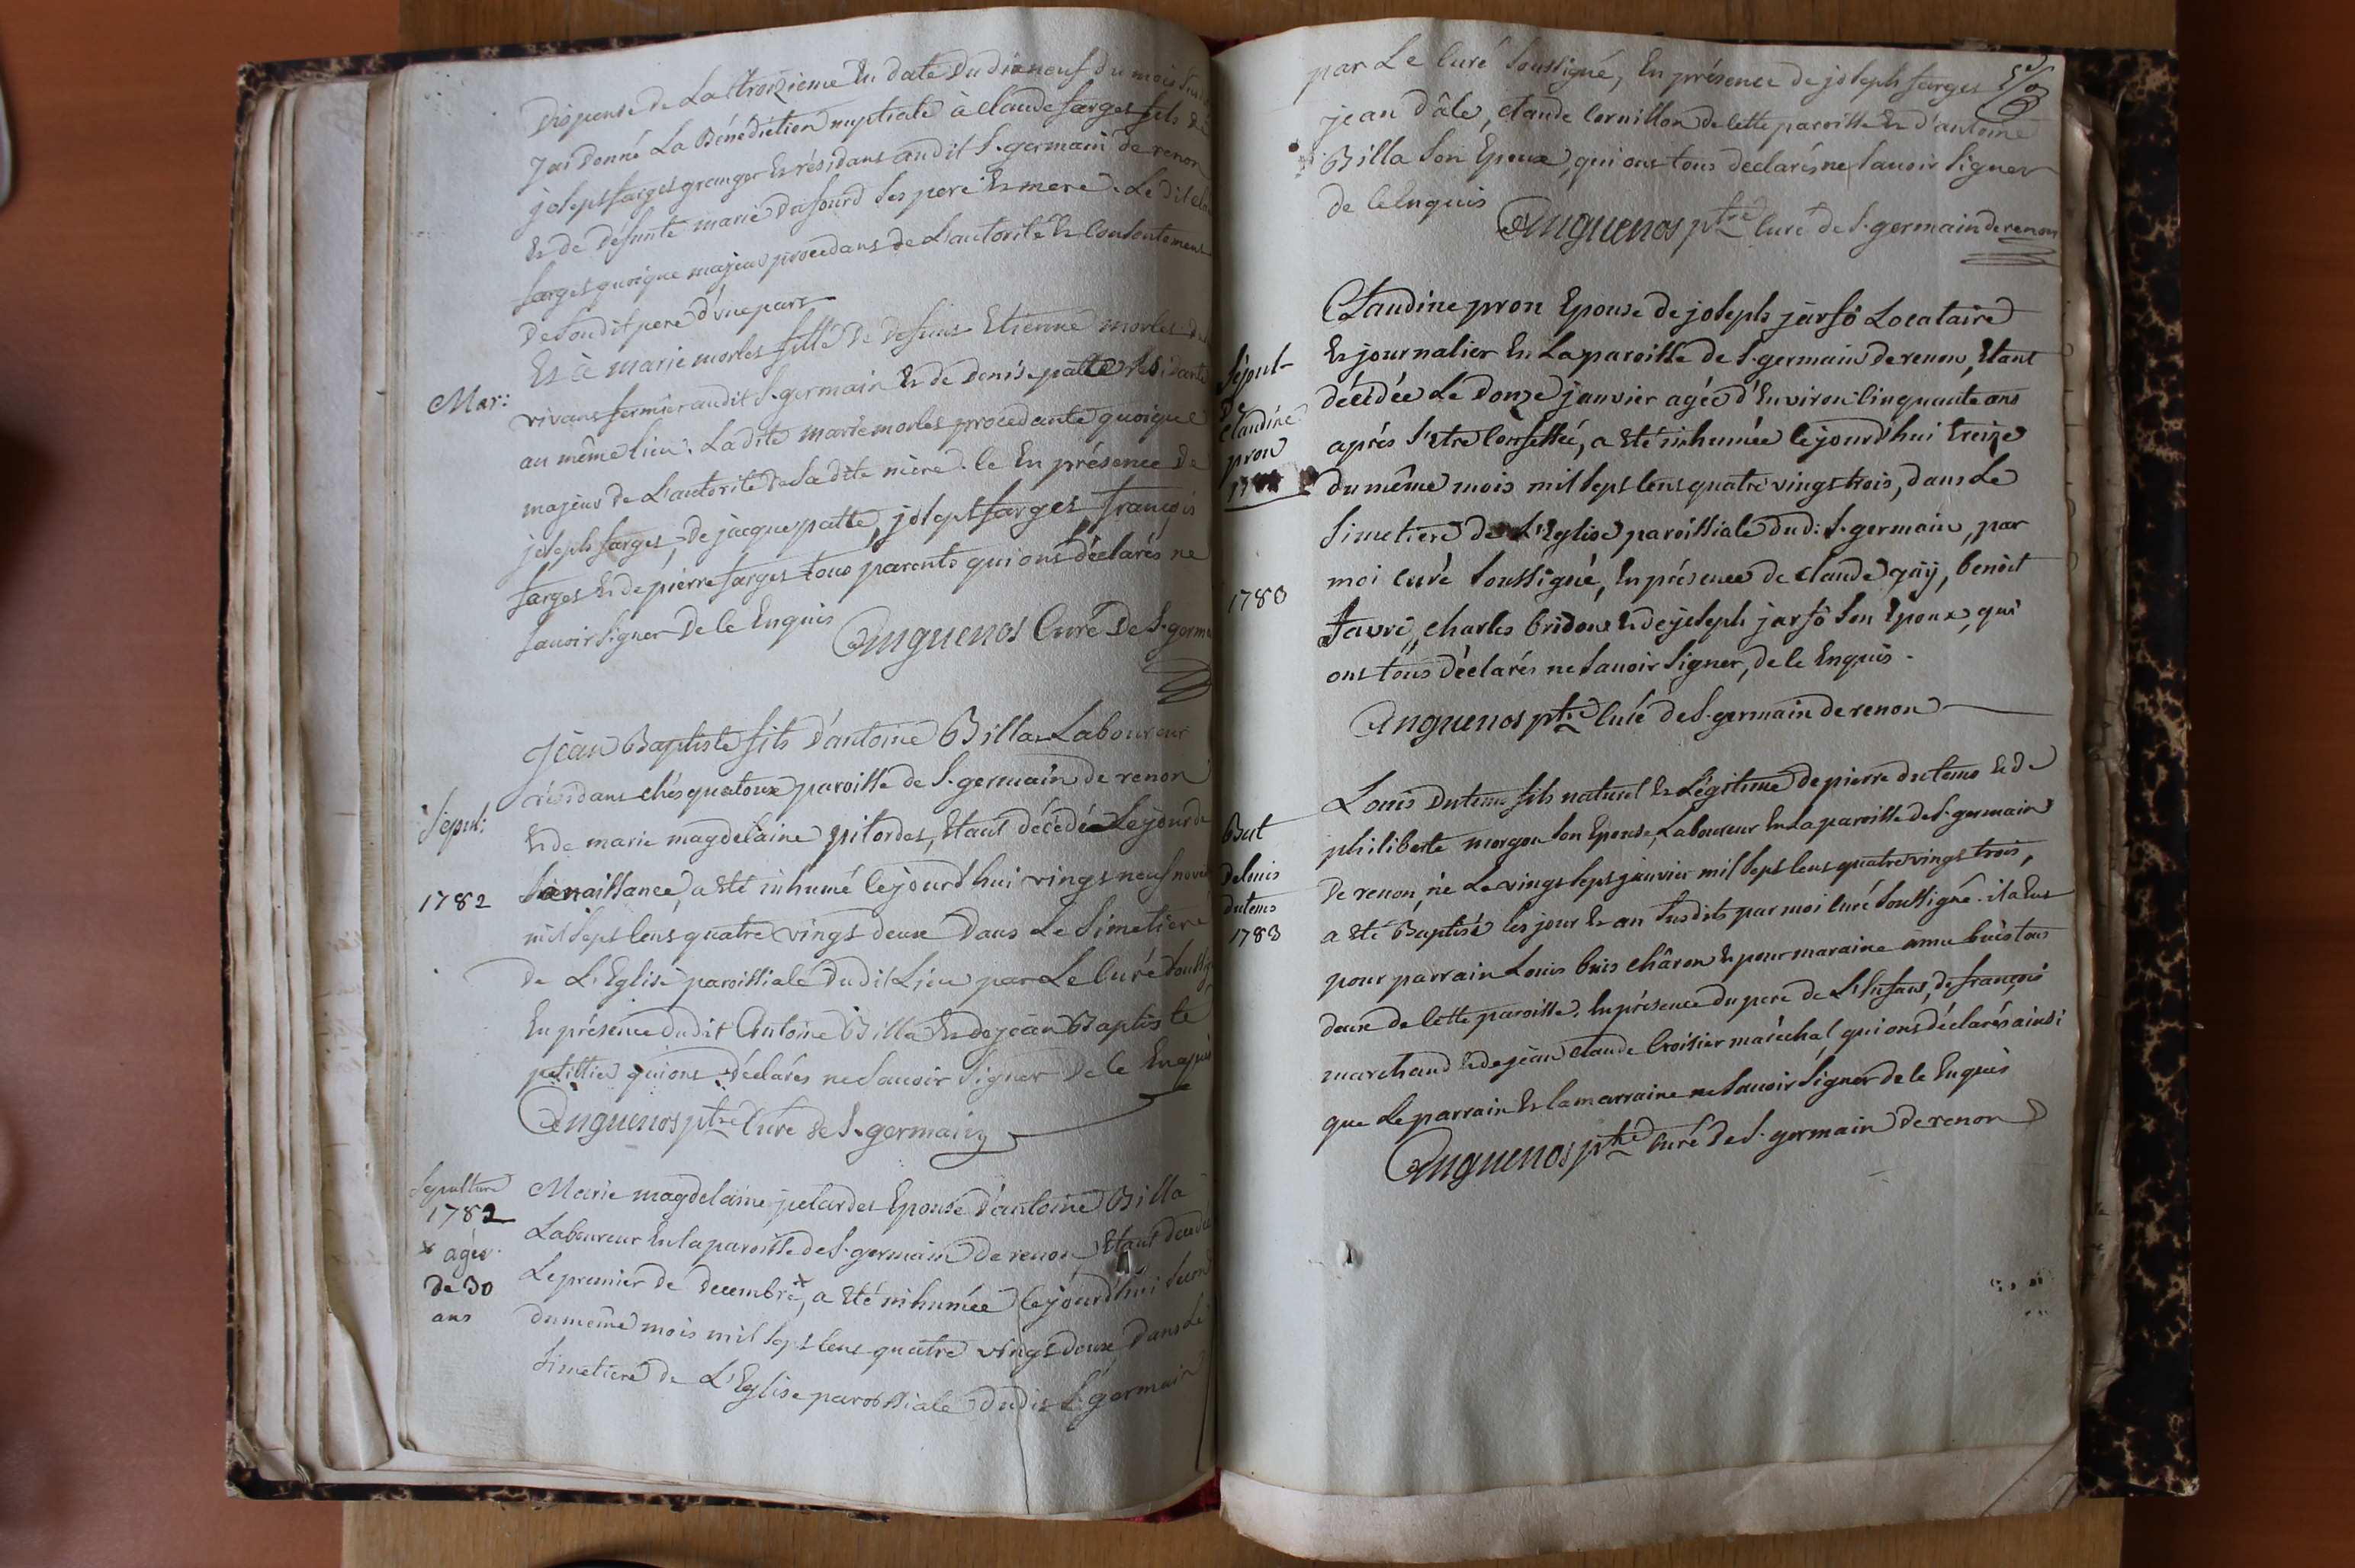 Dispense de La troizieme En date du dixneuf du mois
J'ai donné La Bénédiction nuptiale à claude farges fils de
joseph farges granger Et résidans audit S.germain de renon
Et de défunte marie dufourd ses pere Et mere. Le dit
farges quoique majeur procedans de L'autorité Et Consentement
de Sondit pere d'une part
Mar:
Et à marie morles fille de defunt Etienne morles
vivans fermier audit S.germain Et de denise patte résidante
au même lieu. Ladite marie morles procedante quoique
majeur de L'autorité de Sa dite mère. Ce En présence de
joseph farges, de jacque patte, joseph farges, françois
farges Et de pierre farges tous parents qui ont déclarés ne
Savoir Signer de Ce Enquis
Anguenos Curé de S.germ
Jean Baptiste fils d'antoine Billa Laboureur
résidans chés quatoux paroisse de S.germain de renon
Sepul:
Et de marie magdelaine pitordes, Etant décédé Le jour de
1782
Sa naissance, a Eté inhumé Cejourd'hui vingt neuf
mil Sept Cens quatre vingt deux dans Le Simetiere
de L'Eglise paroissiale dudit Lieu par Le Curé
En présence dudit Antoine Billa Et de jean Baptiste
petittier qui ont déclarés ne Savoir Signer de Ce Enquis
Anguenos ptre Curé de S.germain
Sepulture
1782
x agée
de 30
ans
Marie magdelaine petardes Epouse d'antoine Billa
Laboureur En la paroisse de S.germain de renon, Etant
Le premier de decembre x, a Eté inhumée Cejourd'hui Second
du même mois mil Sept Cens quatre vingt deux dans Le
Simetiere de L'Eglise paroissiale dudit S.germain
par Le Curé Soussigné, En présence de joseph farges
jean dâle, claude Cornillon de Cette paroisse Et d'antoine
Billa Son Epoux, qui ont tous declarés ne Savoir Signer
de Ce Enquis
Anguenos ptre Curé de S.germain de renon
Claudine pron Epouse de joseph jarfô Locataire
Et journalier En La paroisse de S.germain de renon, Etant
Sépul-
de
claudine
pron
décédée Le douze janvier agée d'Environ Cinquante ans
aprés S'etre Confessée, a Eté inhumée Cejourd'hui treize
du même mois mil Sept Cens quatre vingt trois, dans Le
Simetiere de L'Eglise paroissiale dud: S.germain, par
1783
moi curé Soussigné, En présence de claude gäÿ, benoît
favre, charles bridon Et de joseph jarfô Son Epoux, qui
ont tous déclarés ne Savoir Signer, de Ce Enquis.
Anguenos ptre Curé de S.germain de renon
Louis Dutems fils naturel Et Légitime de pierre dutems Et de
Bat
de louis
dutems
1783
philiberte morgon Son Epouse, Laboureur En La paroisse de S.germain
De renon, né Le vingt Sept janvier mil Sept Cens quatre vingt trois,
a Eté Baptisé les jour Et an Susdits par moi Curé Soussigné. il a Eus
pour parrain Louis buis châron Et pour maraine anne buis tou
deux de Cette paroisse. En présence du pere de L'Enfant, de françois
marchand Et de jean claude Croisier maréchal, qui ont déclarés ainsi
que Le parrain Et la marraine ne Savoir Signer de Ce Enquis
Anguenos ptre Curé de S.germain de renon